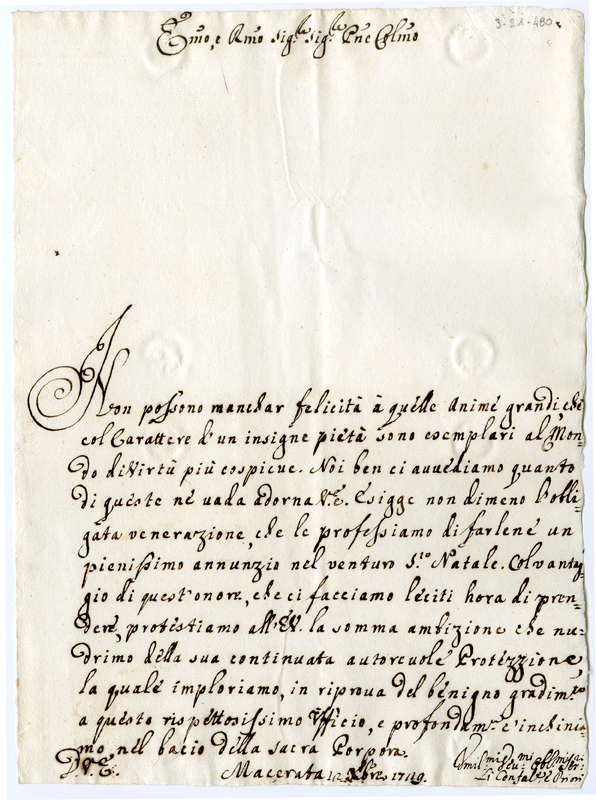 3-21-480
Emo, e Rmo Sig.re Sig.re Pne Colmo
Non possono manchar felicità à quelle Anime grandi, che
col Carattere d'un insigne pietà sono esemplari al Mon-
do di Virtù più cospicue. Noi ben ci auuediamo quanto
di queste ne uada adorna V.E. Esigge non dimeno l'obli-
gata venerazione, che le professiamo di farlene un
pienissimo annunzio nel venturo S.to Natale. Col vantag-
gio di quest'onore, che ci facciamo leciti hora di pren-
dere, protestiamo all'EV. la somma ambizione che nu-
drimo della sua continuata autoreuole Protezzione,
la quale imploriamo, in riprova del benigno gradim.to
a questo rispettosissimo Ufficio, e profondam.e c'inchinia-
mo, nel bacio della sacra Porpora.
D.V.E.
Macerata 12 Xbre 1719.
Umil.mi Deu.mi Obl.mi Ser.ri
Li Confal.re e Priori